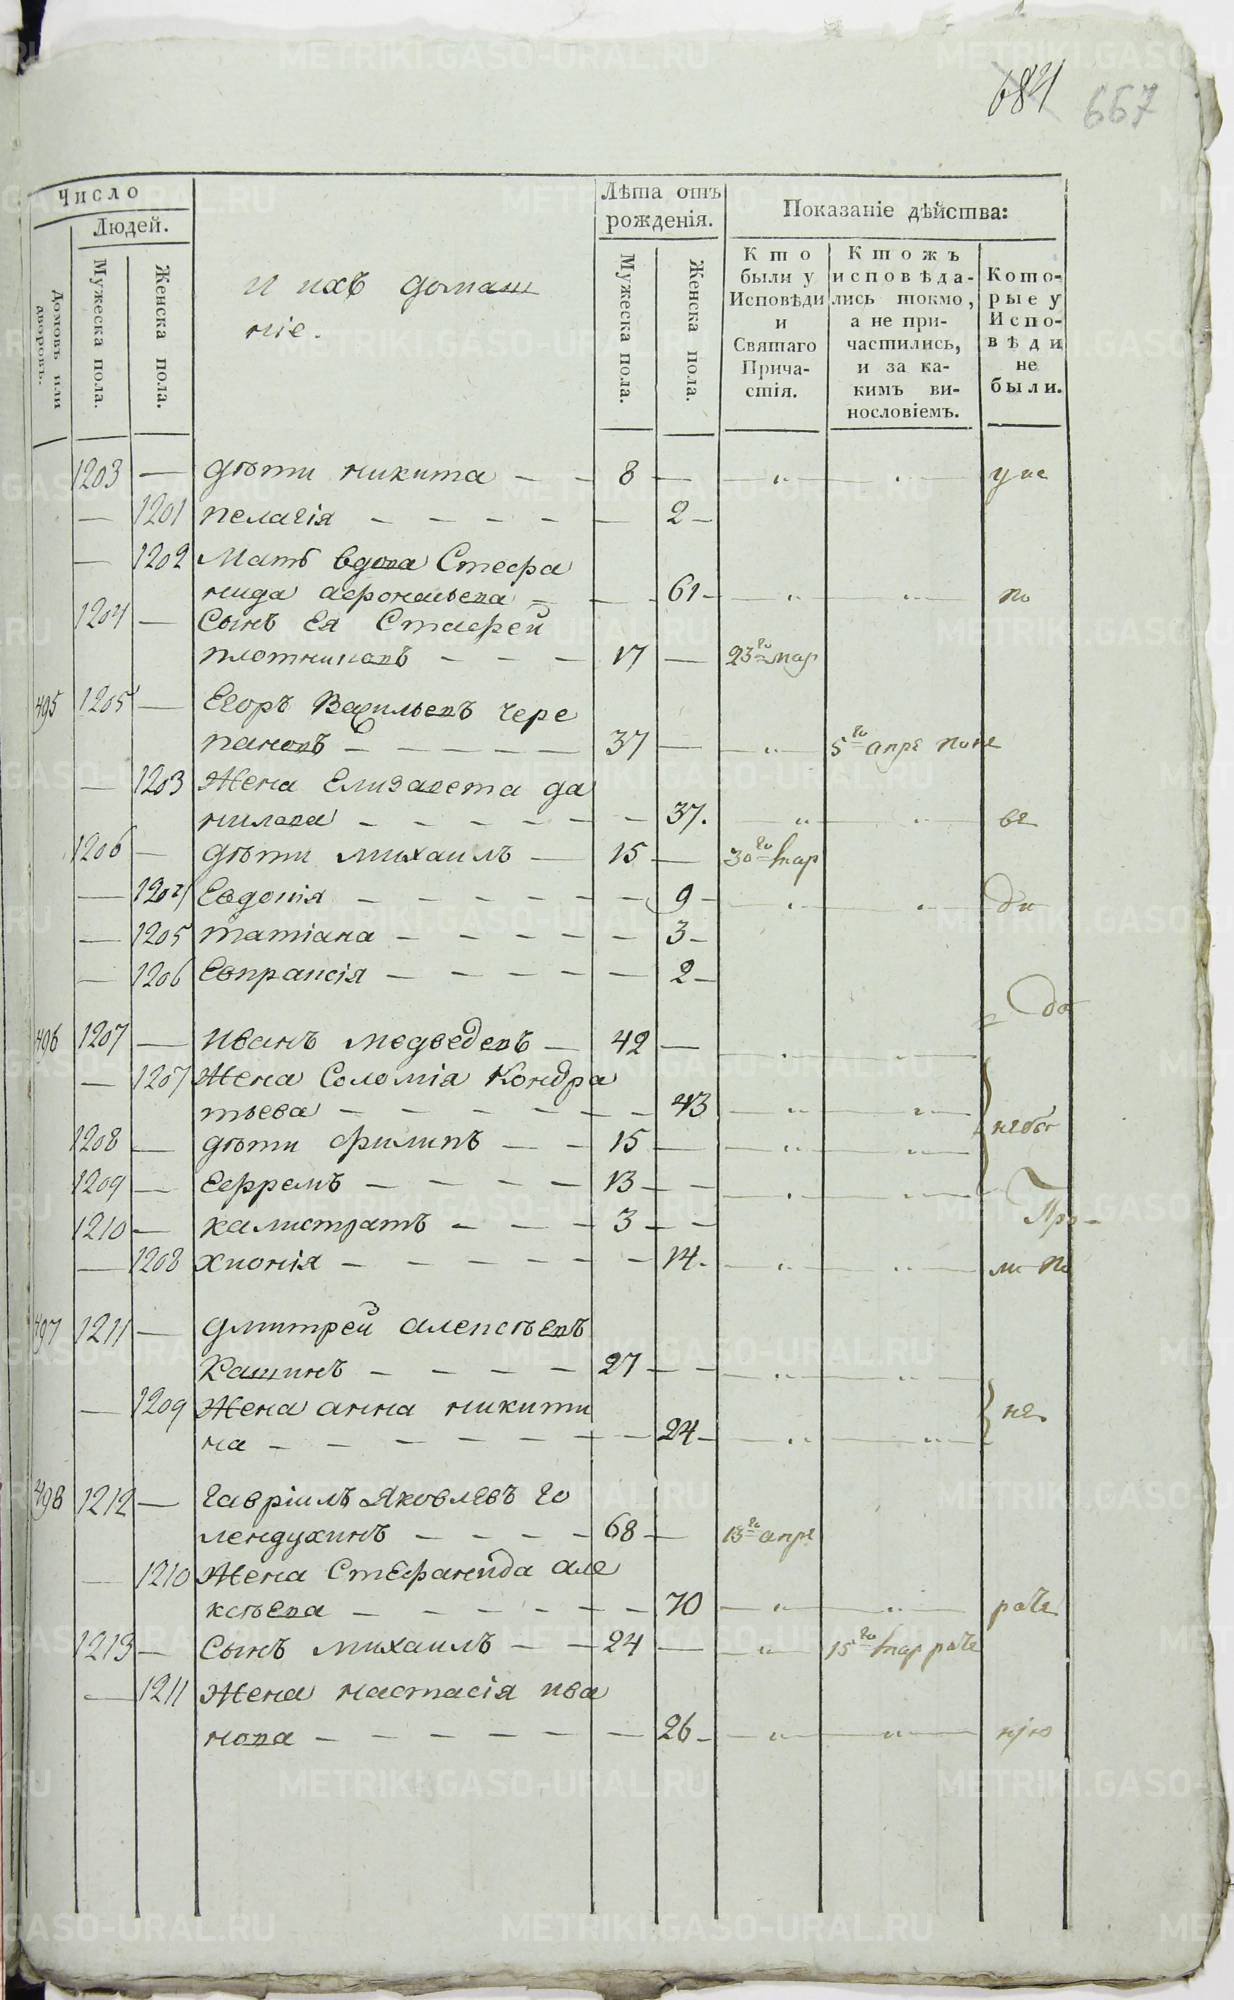 684 667
Число
Людей.
Домовъ или дворовъ.
Мужеска пола.
Женска пола.
и ихъ домаш
ніе.
Лѣта отъ
рожденія.
Мужеска пола.
Женска пола.
Показаніе дѣйства:
Кто
были у
Исповѣди
и
Святаго
Прича-
стія.
Ктожъ
исповѣда-
лись токмо,
а не при-
частились,
и за ка-
кимъ ви-
нословіемъ.
Кото-
рые у
Испо-
вѣди
не
были.
1203 — дѣти никита — — 8 — — „ — „ —
— 1201 пелагія — — — — — 2 —
— 1202 Мать вдова Стефа
нида афонасьева — — — 61 — — „ — „ — по
1204 — Сынъ Ея Стафей
плотниковъ — — — 17 — 23го мар
495 1205 — Егоръ Васильевъ чере
пановъ — — — — — 37 — — „ — 5го апре
— 1203 Жена Елизавета да
нилова — — — — — — 37. — „ — „ —
1206 — дѣти михаилъ — 15 — 30го мар
— 1204 Евдокія — — — — — — 9 — — „ — „ —
— 1205 татіана — — — — — 3 —
— 1206 Евпраксія — — — — — 2 —
496 1207 — иванъ медведевъ — 42 — — „ —
— 1207 Жена Соломія Кондра
тьева — — — — — — 43 — „ — „ —
1208 — дѣти филипъ — — 15 — — „ — „ —
1209 — Ефремъ — — — — 13 — — — „ — „ —
1210 — калистратъ — — — 3 — —
— 1208 хионія — — — — — — 14. — „ — „ —
497 1211 — дмитрей алексѣевъ
Кашинъ — — — — 27 — — — „ — „ —
— 1209 Жена анна никити
на — — — — — — — 24 — — „ — „ — не
498 1212 — гавріилъ Яковлевъ го
лендухинъ — — — — 68 — 13го апре
— 1210 Жена Стефанида але
ксѣева — — — — — — 70 — „ — „ — раче
1213 — Сынъ михаилъ — — 24 — — „ — 15го мар раче
— 1211 Жена настасія ива
нова — — — — — — 26 — — „ — „ —